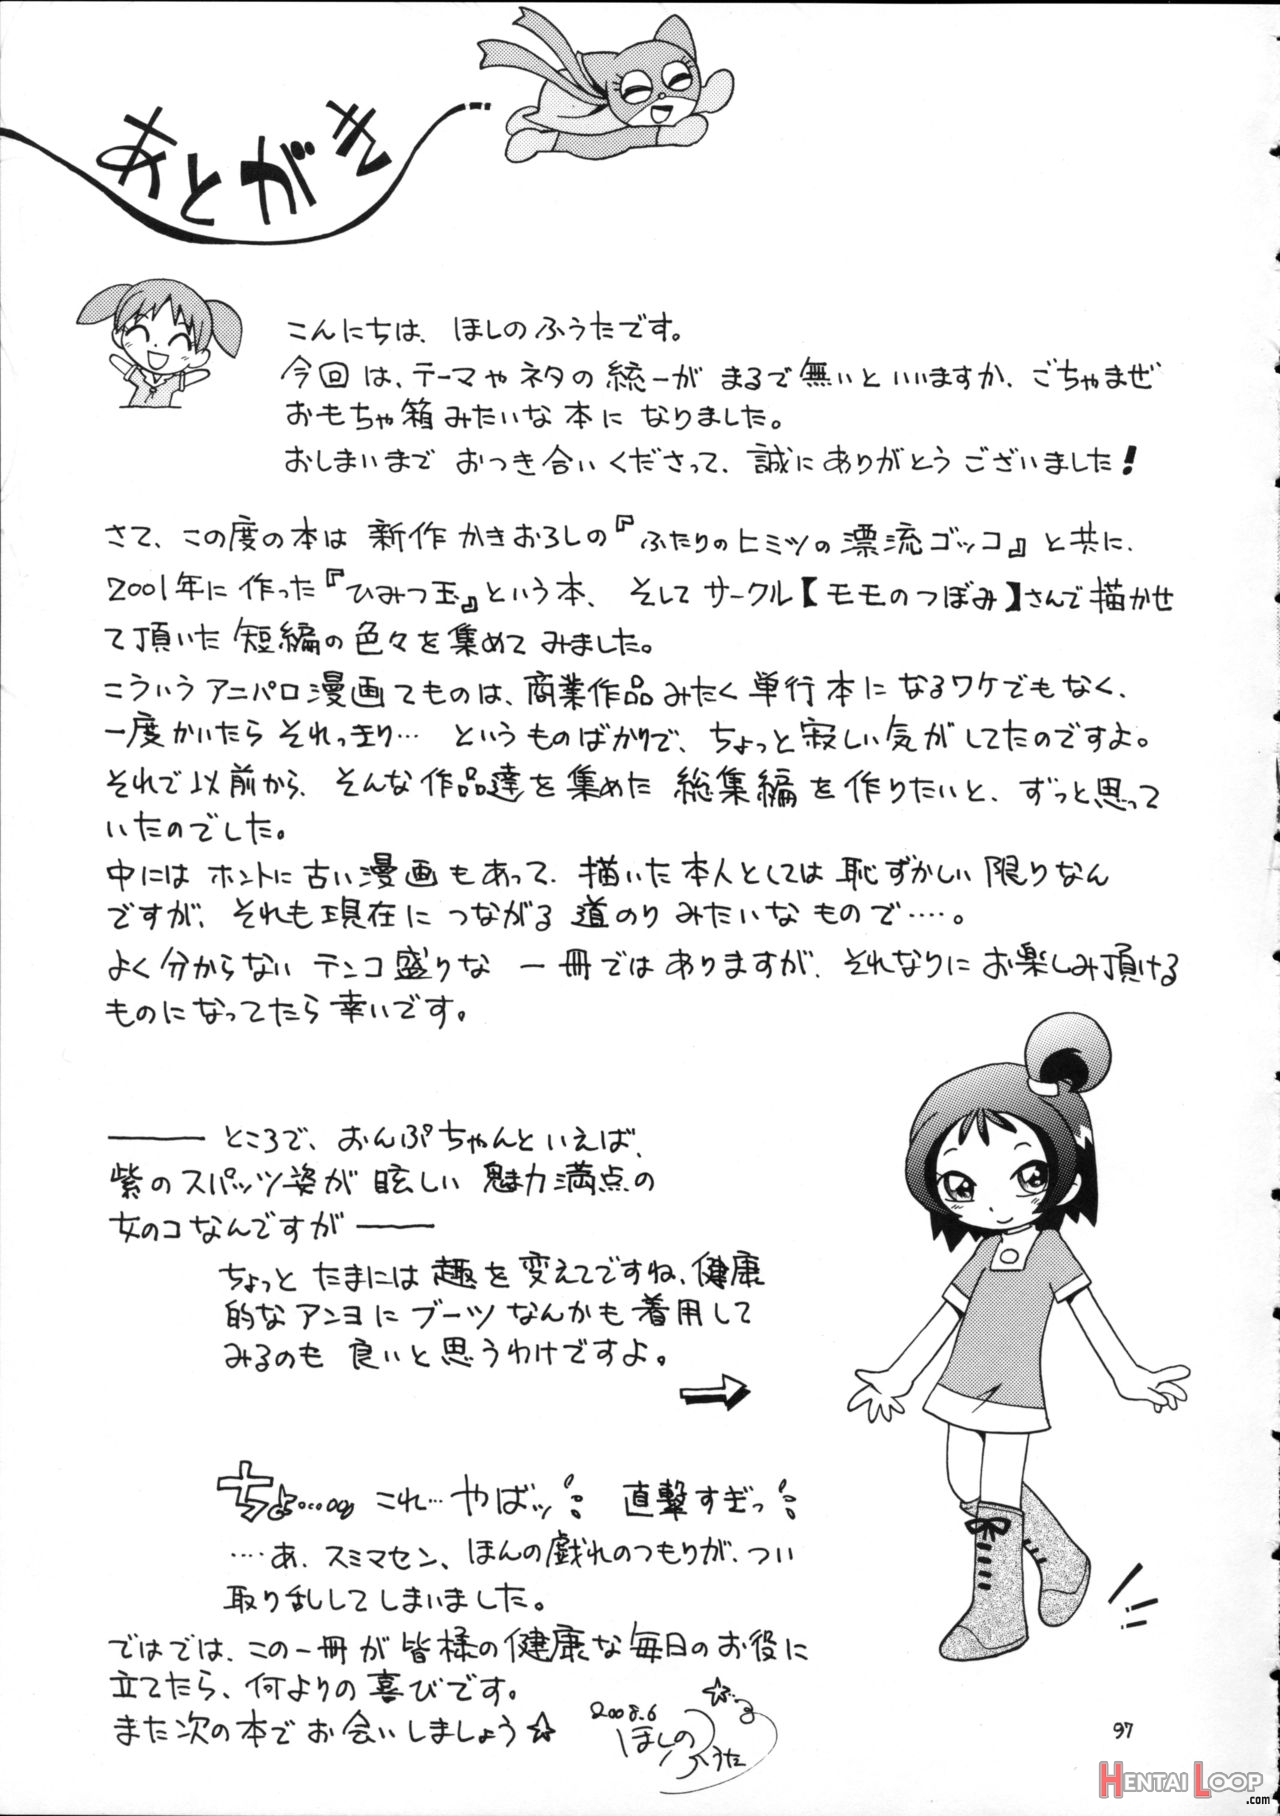 あとがき
こんにちは、ほしのふうたです。
今回は、テーマやネタの統一がまるで無いといいますか、ごちゃまぜ
おもちゃ箱みたいな本になりました。
おしまいまでおつき合いくださって、誠にありがとうございました!
さて、この度の本は新作かきおろしの『ふたりのヒミツの漂流ゴッコ』と共に、
2001年に作った『ひみつ玉』という本、そしてサークル【モモのつぼみ】さんで描かせ
て頂いた短編の色々を集めてみました。
こういうアニパロ漫画てものは、商業作品みたく単行本になるワケでもなく、
一度かいたらそれっきり…というものばかりで、ちょっと寂しい気がしてたのですよ。
それで以前から、そんな作品達を集めた総集編を作りたいと、ずっと思って
いたのでした。
中にはホントに古い漫画もあって、描いた本人としては恥ずかしい限りなん
ですが、それも現在につながる道のりみたいなもので‥‥。
よく分からないテンコ盛りな一冊ではありますが、それなりにお楽しみ頂ける
ものになってたら幸いです。
――ところで、おんぷちゃんといえば、
紫のスパッツ姿が眩しい魅力満点の
女のコなんですが――
ちょっとたまには趣を変えてですね、健康
的なアンヨにブーツなんかも着用して
みるのも良いと思うわけですよ。
→
ちょ…… これ…やばッ!! 直撃すぎっ!!
‥‥あ、スミマセン、ほんの戯れのつもりが、つい
取り乱してしまいました。
ではでは、この一冊が皆様の健康な毎日のお役に
立てたら、何よりの喜びです。
また次の本でお会いしましょう☆
2008.6
ほしのふうた
97
HENTAI LOOP
.com